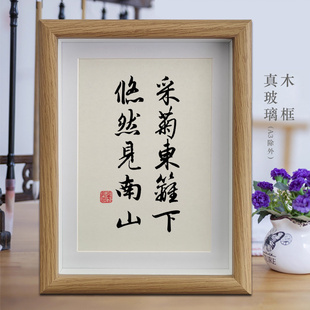 采菊東籬下
悠然見南山
木框
真玻璃
(A3除外)